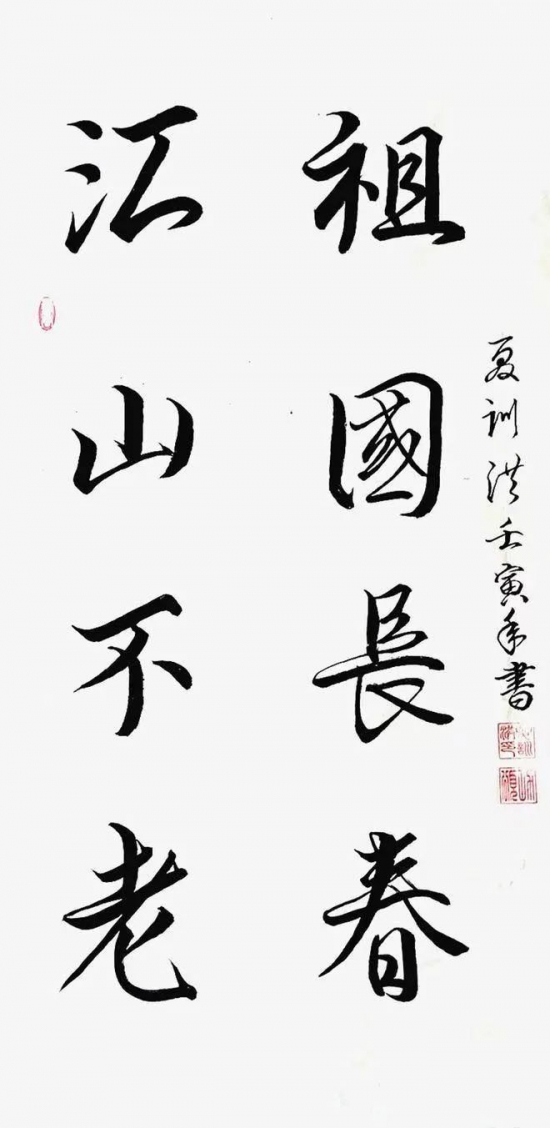 祖國長春
江山不老
夏訓洪壬寅年書